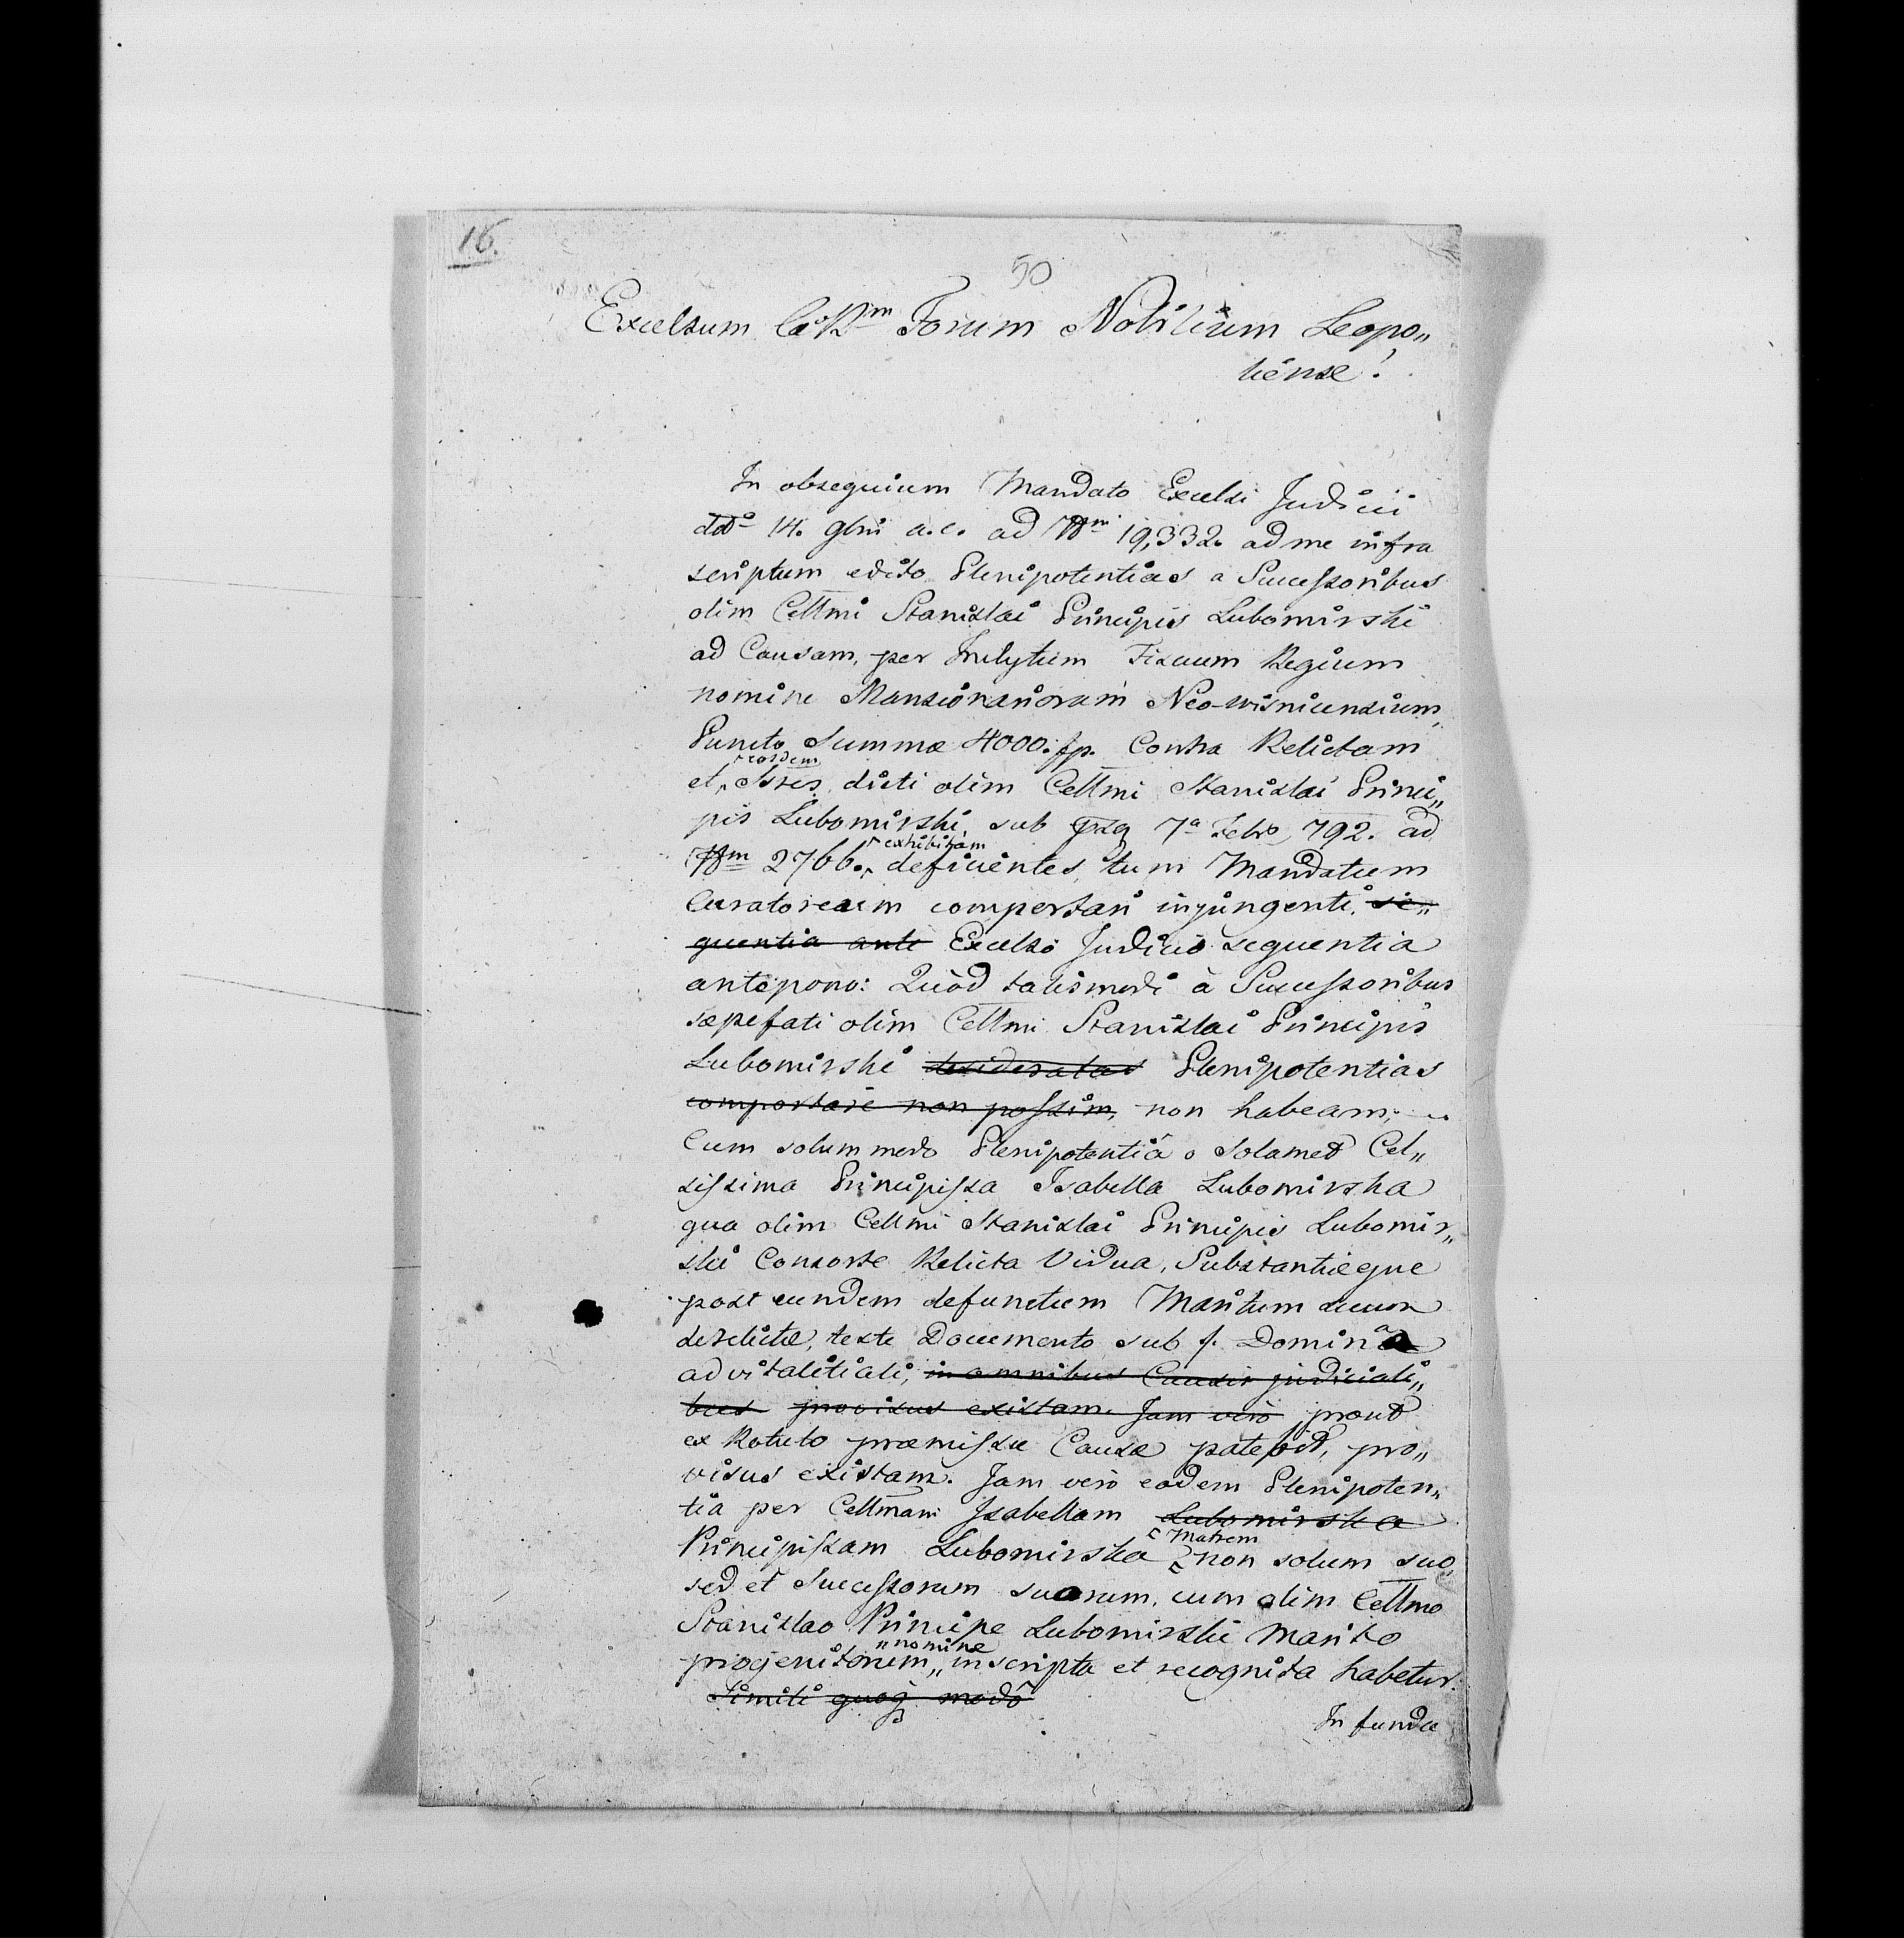 16.
50
Excelsum C. R.m Forum Nobilium Leopo„
liense!
In obsequium Mandato Excelsi Judicii
ddo 14. 9bris a.c. ad Nrm 19,332. ad me infra
scriptum edito Plenipotentias a Successoribus
olim Cellmi Stanislai Principis Lubomirski
ad Causam, per Inclytum Fiscum Regium
nomine Mansionariorum Neo-wisnicensium,
Puncto Summæ 4000. fp. Contra Relictam
eosdem
et Sres dicti olim Cellmi Stanislai Princi„
pis Lubomirski, sub 7a Febr 792. ad
exhibitam
Nrm 2766., deficientes, tum Mandatum
Curatoream comportari injungenti, se„
quentia ante Excelso Judicio sequentia
antepono: Quòd talismodi à Successoribus
sæpefati olim Cellmi Stanislai Principis
Lubomirski desideratas Plenipotentias
comportare non possim, non habeam,
Cum solummodo Plenipotentiâ a Solamet Cel„
sissima Principissa Isabella Lubomirska
qua olim Cellmi Stanislai Principis Lubomir„
ski Consorte Relicta Vidua, Substantiæque
post eundem defunctum Maritum suum
derelictæ, teste Documento sub ·/. Domina
advitalitiali, in omnibus Causis judiciali„
bus provisus existam. Jam verò prout
ex Rotulo præmissæ Causæ patebit, pro„
visus existam. Jam verò eadem Plenipoten„
tia per Cellmam Isabellam Lubomirska
Matrem
Principissam Lubomirska non solum suo,
sed et Successorum suorum, cum olim Cellmo
Stanislao Principe Lubomirski Marito
nomine
progenitorum„ inscripta et recognita habetur.
Simili quoq modô
In funda